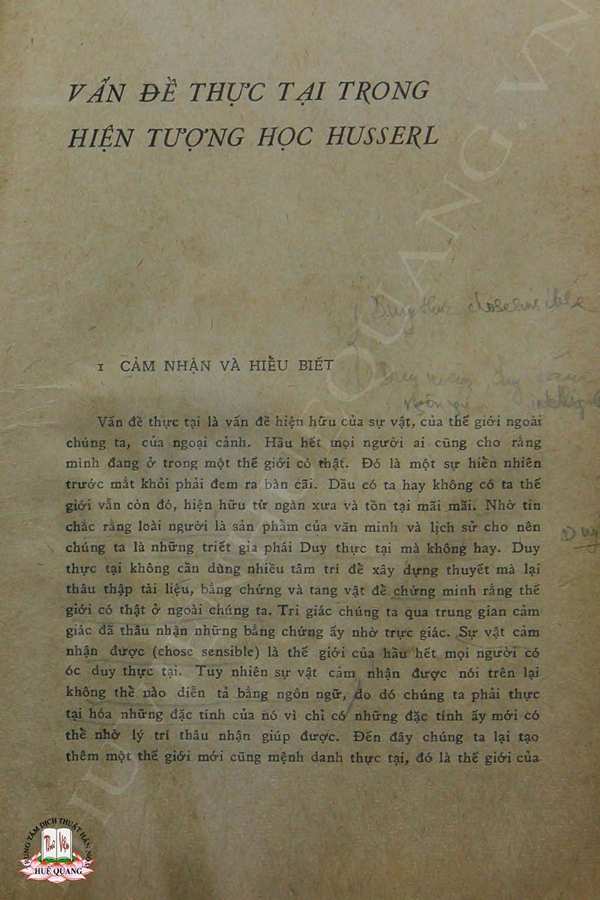 VẤN ĐỀ THỰC TẠI TRONG
HIỆN TƯỢNG HỌC HUSSERL
chose sensible
I CẢM NHẬN VÀ HIỂU BIẾT
Vấn đề thực tại là vấn đề hiện hữu của sự vật, của thế giới ngoài
chúng ta, của ngoại cảnh. Hầu hết mọi người ai cũng cho rằng
mình đang ở trong một thế giới có thật. Đó là một sự hiển nhiên
trước mắt khỏi phải đem ra bàn cãi. Dầu có ta hay không có ta thế
giới vẫn còn đó, hiện hữu từ ngàn xưa và tồn tại mãi mãi. Nhờ tin
chắc rằng loài người là sản phẩm của văn minh và lịch sử cho nên
chúng ta là những triết gia phái Duy thực tại mà không hay. Duy
Duy
thực tại không cần dùng nhiều tâm trí để xây dựng thuyết mà lại
thâu thập tài liệu, bằng chứng và tang vật để chứng minh rằng thế
giới có thật ở ngoài chúng ta. Tri giác chúng ta qua trung gian cảm
giác đã thâu nhận những bằng chứng ấy nhờ trực giác. Sự vật cảm
nhận được (chose sensible) là thế giới của hầu hết mọi người có
óc duy thực tại. Tuy nhiên sự vật cảm nhận được nói trên lại
không thể nào diễn tả bằng ngôn ngữ, do đó chúng ta phải thực
tại hóa những đặc tính của nó vì chỉ có những đặc tính ấy mới có
thể nhờ lý trí thâu nhận giúp được. Đến đây chúng ta lại tạo
thêm một thế giới mới cũng mệnh danh thực tại, đó là thế giới của
TRUNG TÂM DỊCH THUẬT HÁN NÔM
HUỆ QUANG